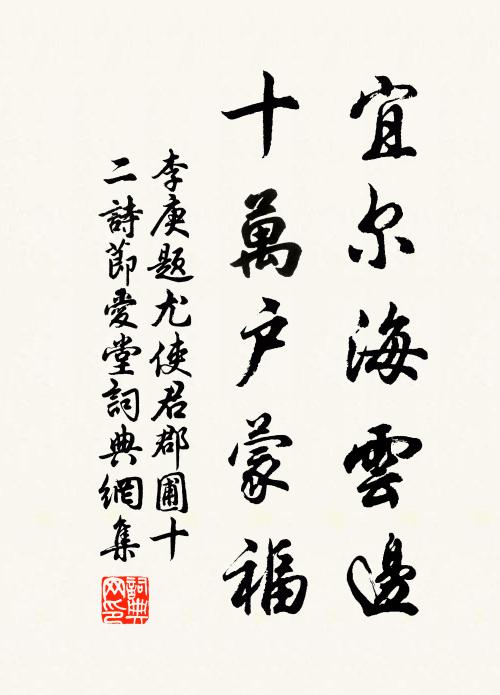 宜尔海雲邊
十萬户蒙福
李庚题尤使君郡圃十
二詩節愛堂詞典網集
詞典
网印